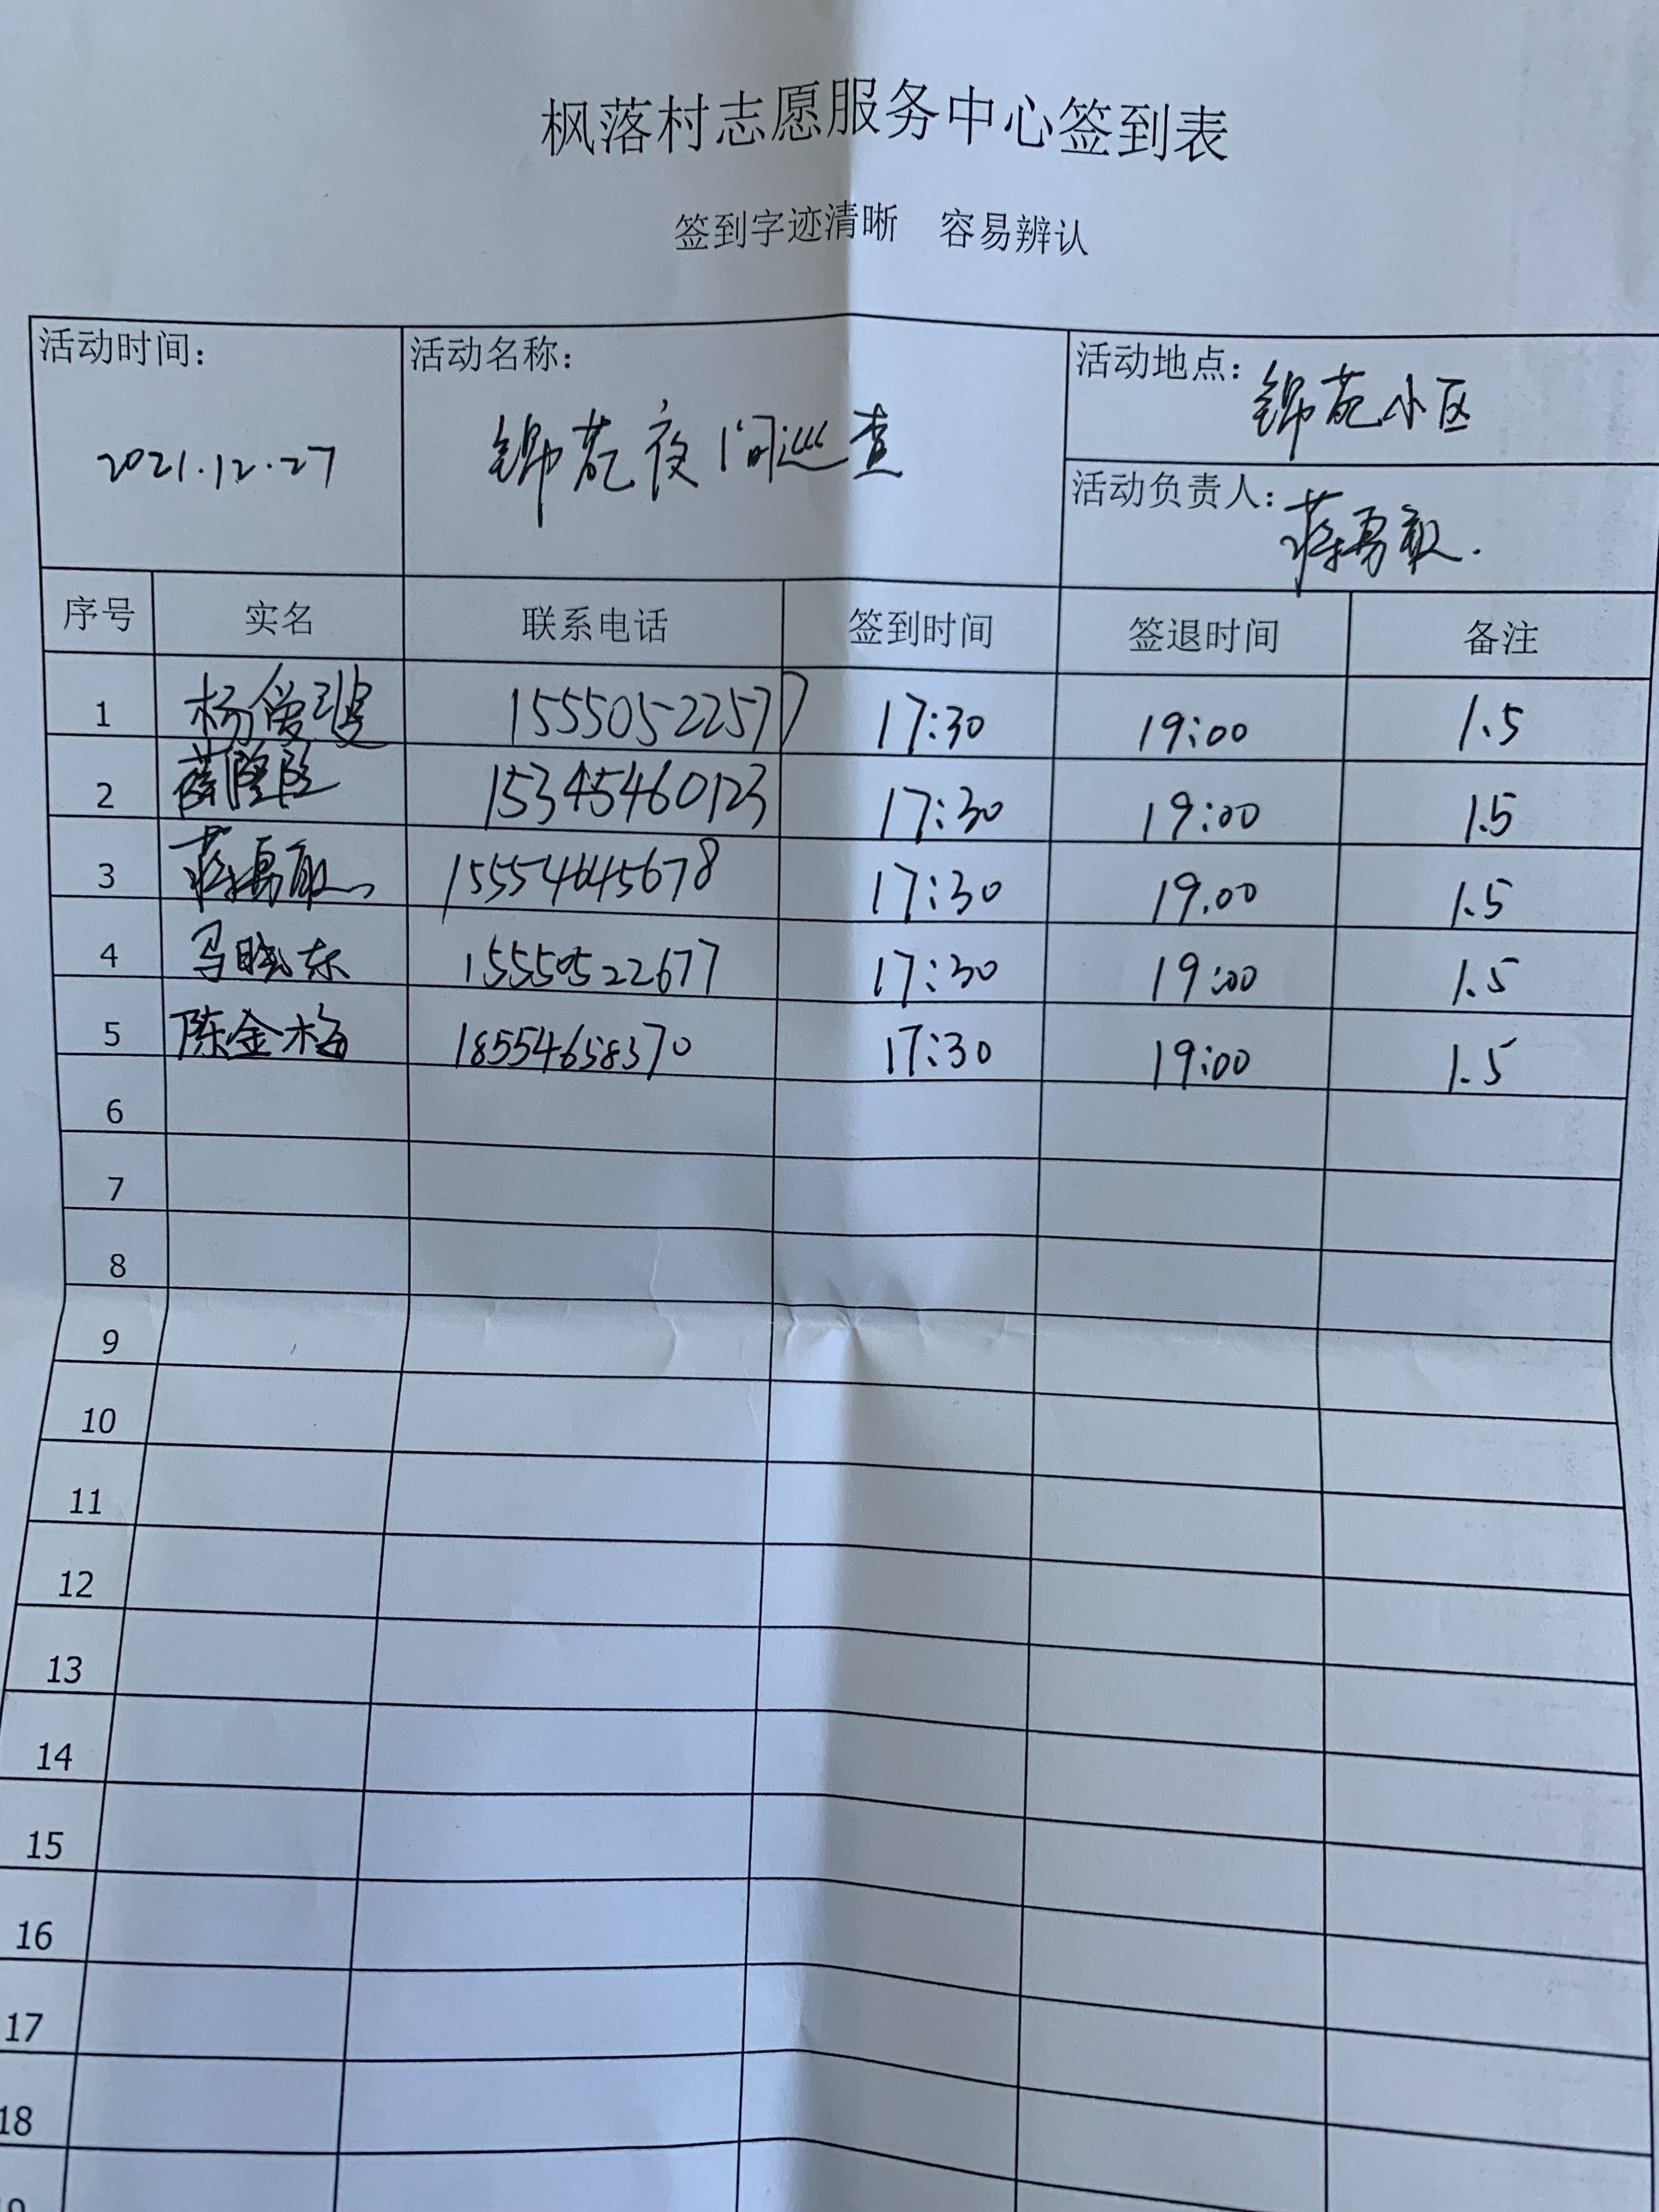 枫落村志愿服务中心签到表
签到字迹清晰 容易辨认
活动时间： 活动名称： 活动地点：锦苑小区
2021.12.27 锦苑夜间巡查
活动负责人：蒋勇敢.
序号 实名 联系电话 签到时间 签退时间 备注
1 杨爱 15550522577 17:30 19:00 1.5
2 薛隆 15345460123 17:30 19:00 1.5
3 蒋勇敢 15554645678 17:30 19.00 1.5
4 马晓东 15550522677 17:30 19:00 1.5
5 陈金梅 18554658370 17:30 19:00 1.5
6
7
8
9
10
11
12
13
14
15
16
17
18